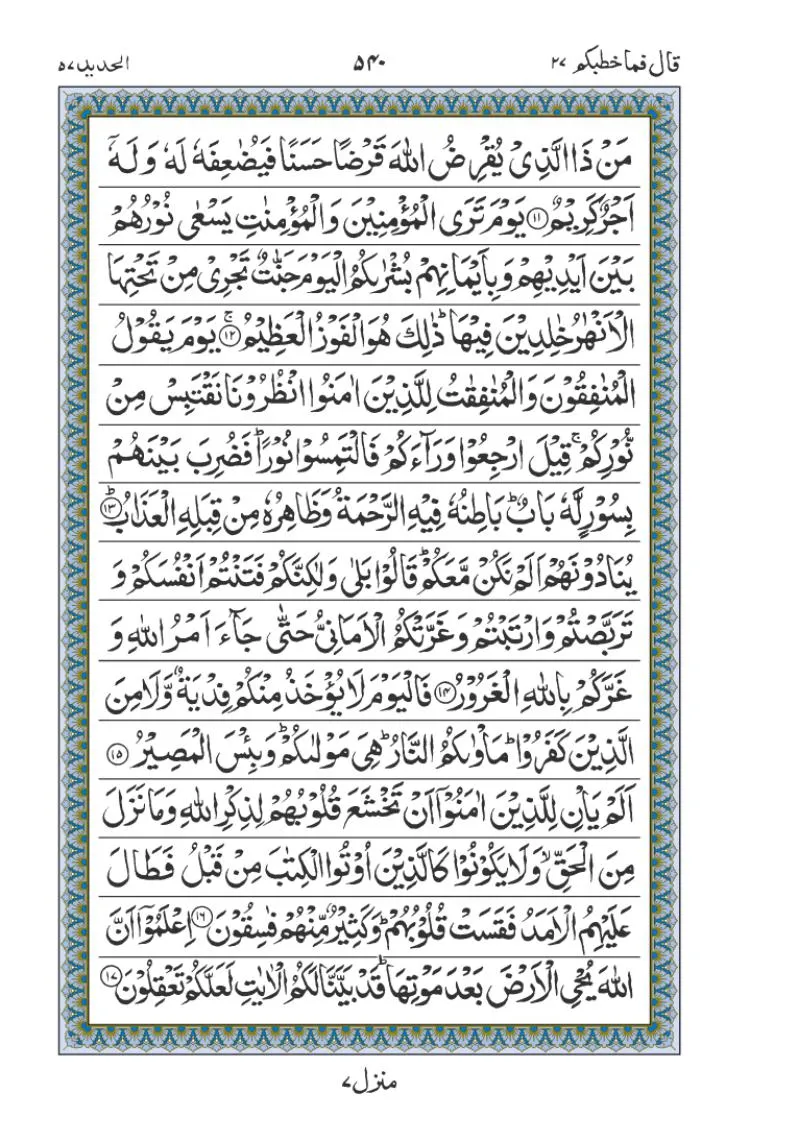 قال فما خطبكم ٢٧ ٥٤٠ الحديد ٥٧
مَنْ ذَا الَّذِیْ یُقْرِضُ اللّٰهَ قَرْضًا حَسَنًا فَیُضٰعِفَهٗ لَهٗ وَ لَهٗۤ
اَجْرٌ كَرِیْمٌ ۝۱۱ یَوْمَ تَرَی الْمُؤْمِنِیْنَ وَ الْمُؤْمِنٰتِ یَسْعٰی نُوْرُهُمْ
بَیْنَ اَیْدِیْهِمْ وَ بِاَیْمَانِهِمْ بُشْرٰىكُمُ الْیَوْمَ جَنّٰتٌ تَجْرِیْ مِنْ تَحْتِهَا
الْاَنْهٰرُ خٰلِدِیْنَ فِیْهَا ؕ ذٰلِكَ هُوَ الْفَوْزُ الْعَظِیْمُ ۝۱۲ۚ یَوْمَ یَقُوْلُ
الْمُنٰفِقُوْنَ وَ الْمُنٰفِقٰتُ لِلَّذِیْنَ اٰمَنُوا انْظُرُوْنَا نَقْتَبِسْ مِنْ
نُّوْرِكُمْ ۚ قِیْلَ ارْجِعُوْا وَرَآءَكُمْ فَالْتَمِسُوْا نُوْرًا ؕ فَضُرِبَ بَیْنَهُمْ
بِسُوْرٍ لَّهٗ بَابٌ ؕ بَاطِنُهٗ فِیْهِ الرَّحْمَةُ وَ ظَاهِرُهٗ مِنْ قِبَلِهِ الْعَذَابُ ۝۱۳ؕ
یُنَادُوْنَهُمْ اَلَمْ نَكُنْ مَّعَكُمْ ؕ قَالُوْا بَلٰی وَ لٰكِنَّكُمْ فَتَنْتُمْ اَنْفُسَكُمْ وَ
تَرَبَّصْتُمْ وَ ارْتَبْتُمْ وَ غَرَّتْكُمُ الْاَمَانِیُّ حَتّٰی جَآءَ اَمْرُ اللّٰهِ وَ
غَرَّكُمْ بِاللّٰهِ الْغَرُوْرُ ۝۱۴ فَالْیَوْمَ لَا یُؤْخَذُ مِنْكُمْ فِدْیَةٌ وَّ لَا مِنَ
الَّذِیْنَ كَفَرُوْا ؕ مَاْوٰىكُمُ النَّارُ ؕ هِیَ مَوْلٰىكُمْ ؕ وَ بِئْسَ الْمَصِیْرُ ۝۱۵
اَلَمْ یَاْنِ لِلَّذِیْنَ اٰمَنُوْۤا اَنْ تَخْشَعَ قُلُوْبُهُمْ لِذِكْرِ اللّٰهِ وَ مَا نَزَلَ
مِنَ الْحَقِّ ۙ وَ لَا یَكُوْنُوْا كَالَّذِیْنَ اُوْتُوا الْكِتٰبَ مِنْ قَبْلُ فَطَالَ
عَلَیْهِمُ الْاَمَدُ فَقَسَتْ قُلُوْبُهُمْ ؕ وَ كَثِیْرٌ مِّنْهُمْ فٰسِقُوْنَ ۝۱۶ اِعْلَمُوْۤا اَنَّ
اللّٰهَ یُحْیِ الْاَرْضَ بَعْدَ مَوْتِهَا ؕ قَدْ بَیَّنَّا لَكُمُ الْاٰیٰتِ لَعَلَّكُمْ تَعْقِلُوْنَ ۝۱۷
منزل ٧